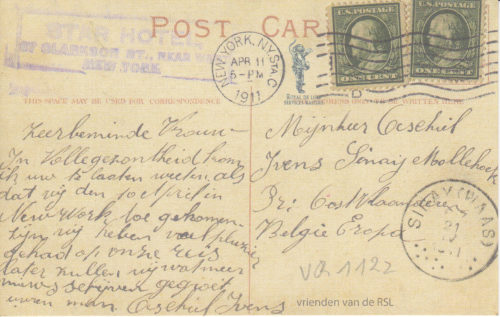 POST CARD
STAR HOTEL
CLARKSON ST., NEAR
NEW YORK
NEW YORK, N.Y. STA. C
APR 11
5-PM
1911
U.S. POSTAGE
ONE CENT
U.S. POSTAGE
ONE CENT
THIS SPACE MAY BE USED FOR CORRESPONDENCE
Zeerbeminde Vrouw
In Volle gezontheid kom
ik uw te laaten weeten als
dat wij den 10 april in
New York toe gekomen
zijn wij heben veel plezier
gehad op onze reis
later zullen wij wat meer
nieuws schrijven gegoet
uwen man Esechiel Ivens
Mijnheer Esechiel
Ivens Sinaij Mollehoek
Pr: Oost Vlaanderen
Belgie Eropa
SINAY (WAAS)
21
VR 1122
vrienden van de RSL